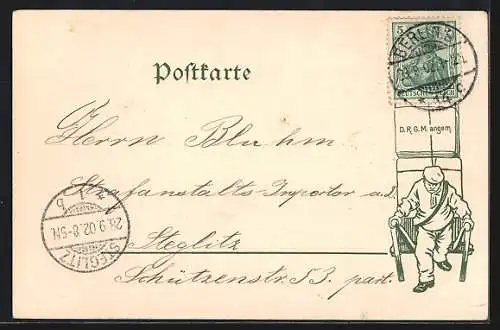 5
DEUTSCHES REICH
BERLIN
9.02
Postkarte
D.R.G.M. angem.
Herrn Bluhm
Strafanstalts-Inspector a. d.
Steglitz
Schützenstr. 53. part.
STEGLITZ
23.9.02.8-9N.